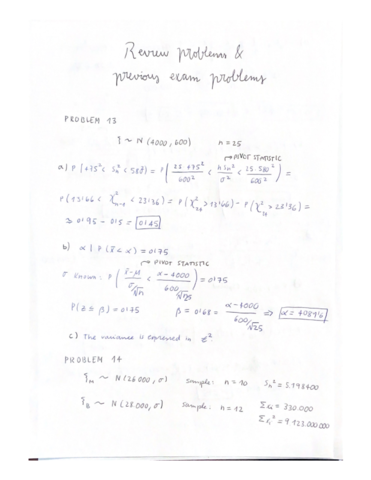 Review problems &
previous exam problems
PROBLEM 13
ξ ~ N (4000, 600) n = 25
→ PIVOT STATISTIC
a) P (475² < Sn² < 580²) = P ( 25·475² / 600² < n Sn² / σ² < 25·580² / 600² ) =
P (15'66 < χ²n-1 < 23'36) = P (χ²24 > 15'66) - P (χ²24 > 23'36) =
= 0'95 - 0'5 = 0'45
b) α | P (x̄ < α) = 0'75
→ PIVOT STATISTIC
σ known: P ( x̄-μ / σ/√n < α-4000 / 600/√25 ) = 0'75
P(Z ≤ β) = 0'75 β = 0'68 = α-4000 / 600/√25 ⇒ α = 4081'6
c) The variance is expressed in €².
PROBLEM 14
~ N (26.000, σ) sample: n = 10
ξB ~ N (28.000, σ) sample: n = 12 Σxi = 330.000
Σxi² = 9.123.000.000